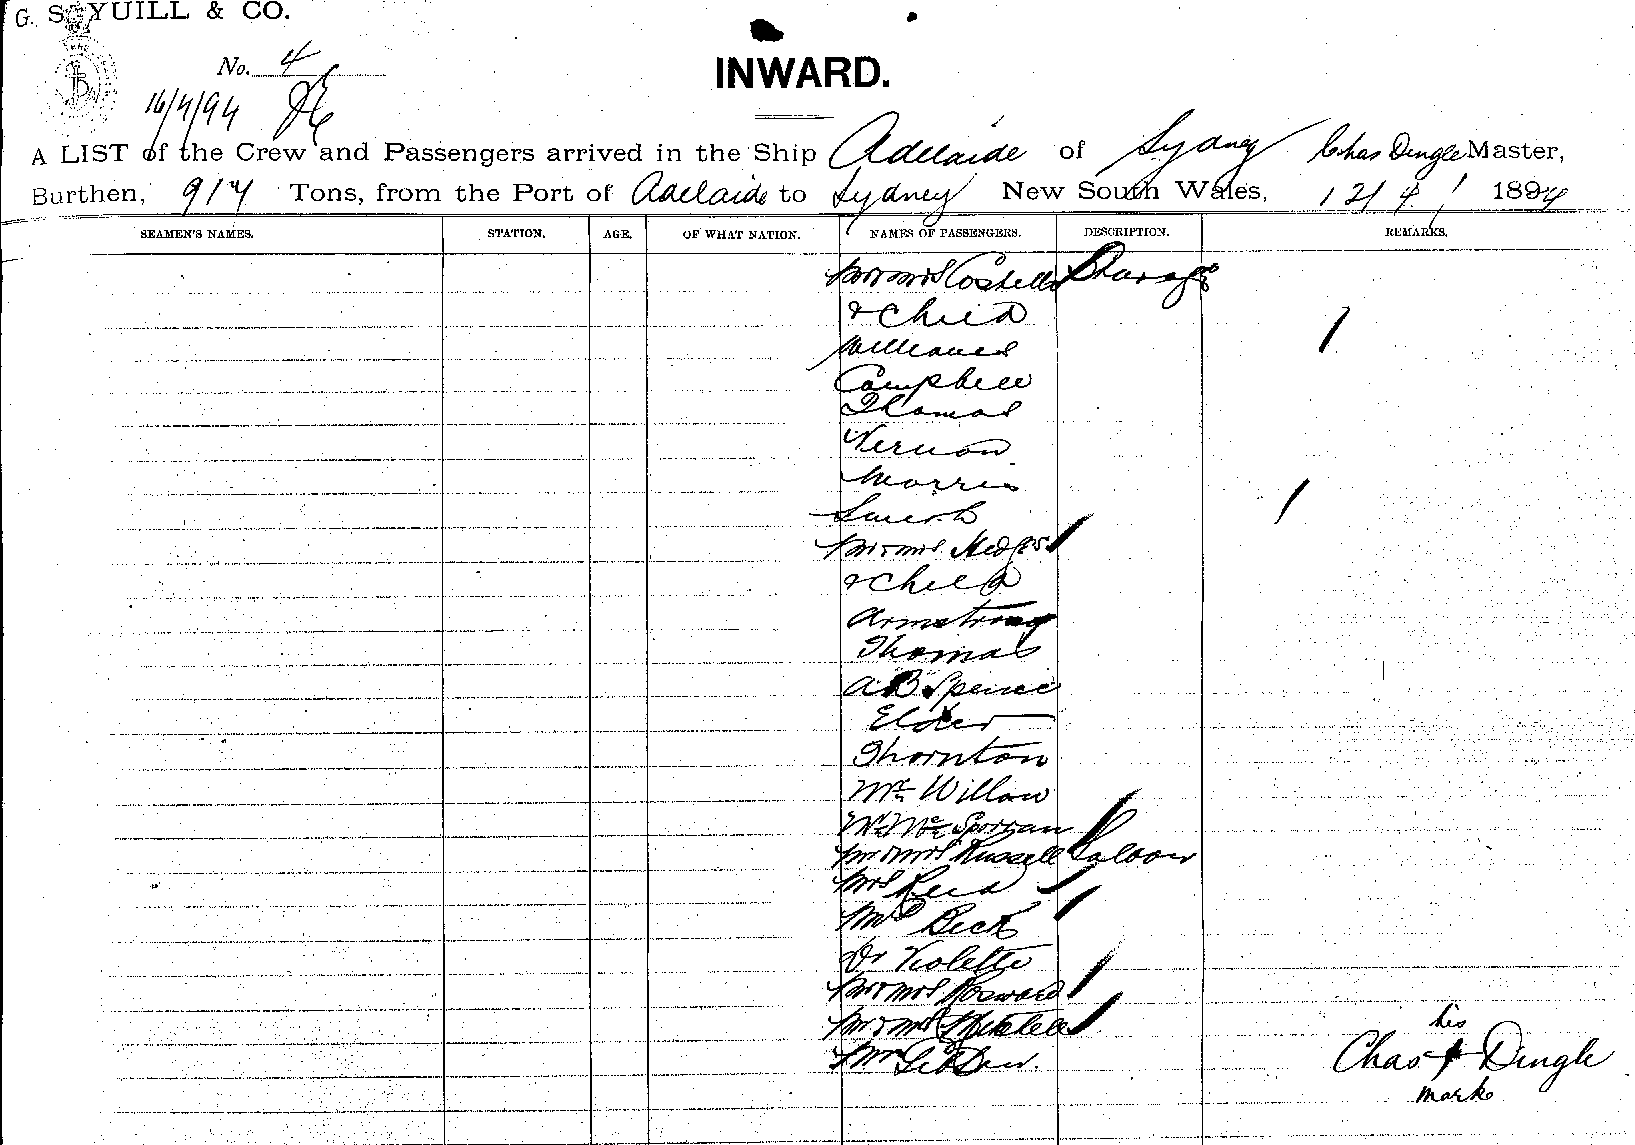 G. S. YUILL & CO.
No. 4
INWARD.
16/4/94
A LIST of the Crew and Passengers arrived in the Ship Adelaide of Sydney Chas Dingle Master,
Burthen, 914 Tons, from the Port of Adelaide to Sydney New South Wales, 12/4/ 1894
SEAMEN'S NAMES. STATION. AGE. OF WHAT NATION. NAMES OF PASSENGERS. DESCRIPTION. REMARKS.
Mr & Mrs Costello Steerage
& Child
Williams
Campbell
Thomas
Vernon
Morris
Smith
Mr & Mrs Hedges
& Child
Armstrong
Thomas
A B Spence
Elder
Thornton
Mc Willow
Mc Sporran
Mr & Mrs Russell Saloon
Mrs Reid
Mrs Beck
Dr Violette
Mr & Mrs
Mr & Mrs Mitchell
Mr
his
Chas Dingle
mark